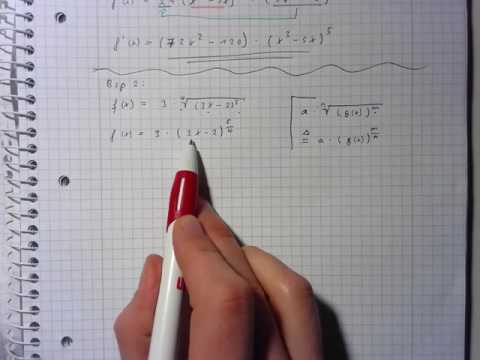 f'(x) = (72x² - 120) · (x³ - 5x)⁵
Bsp 2:
f(x) = 3 · ⁴√(3x-2)⁵
f(x) = 3 · (3x-2)^(5/4)
a · ⁿ√(g(x))ᵐ
≙ a · (g(x))^(m/n)